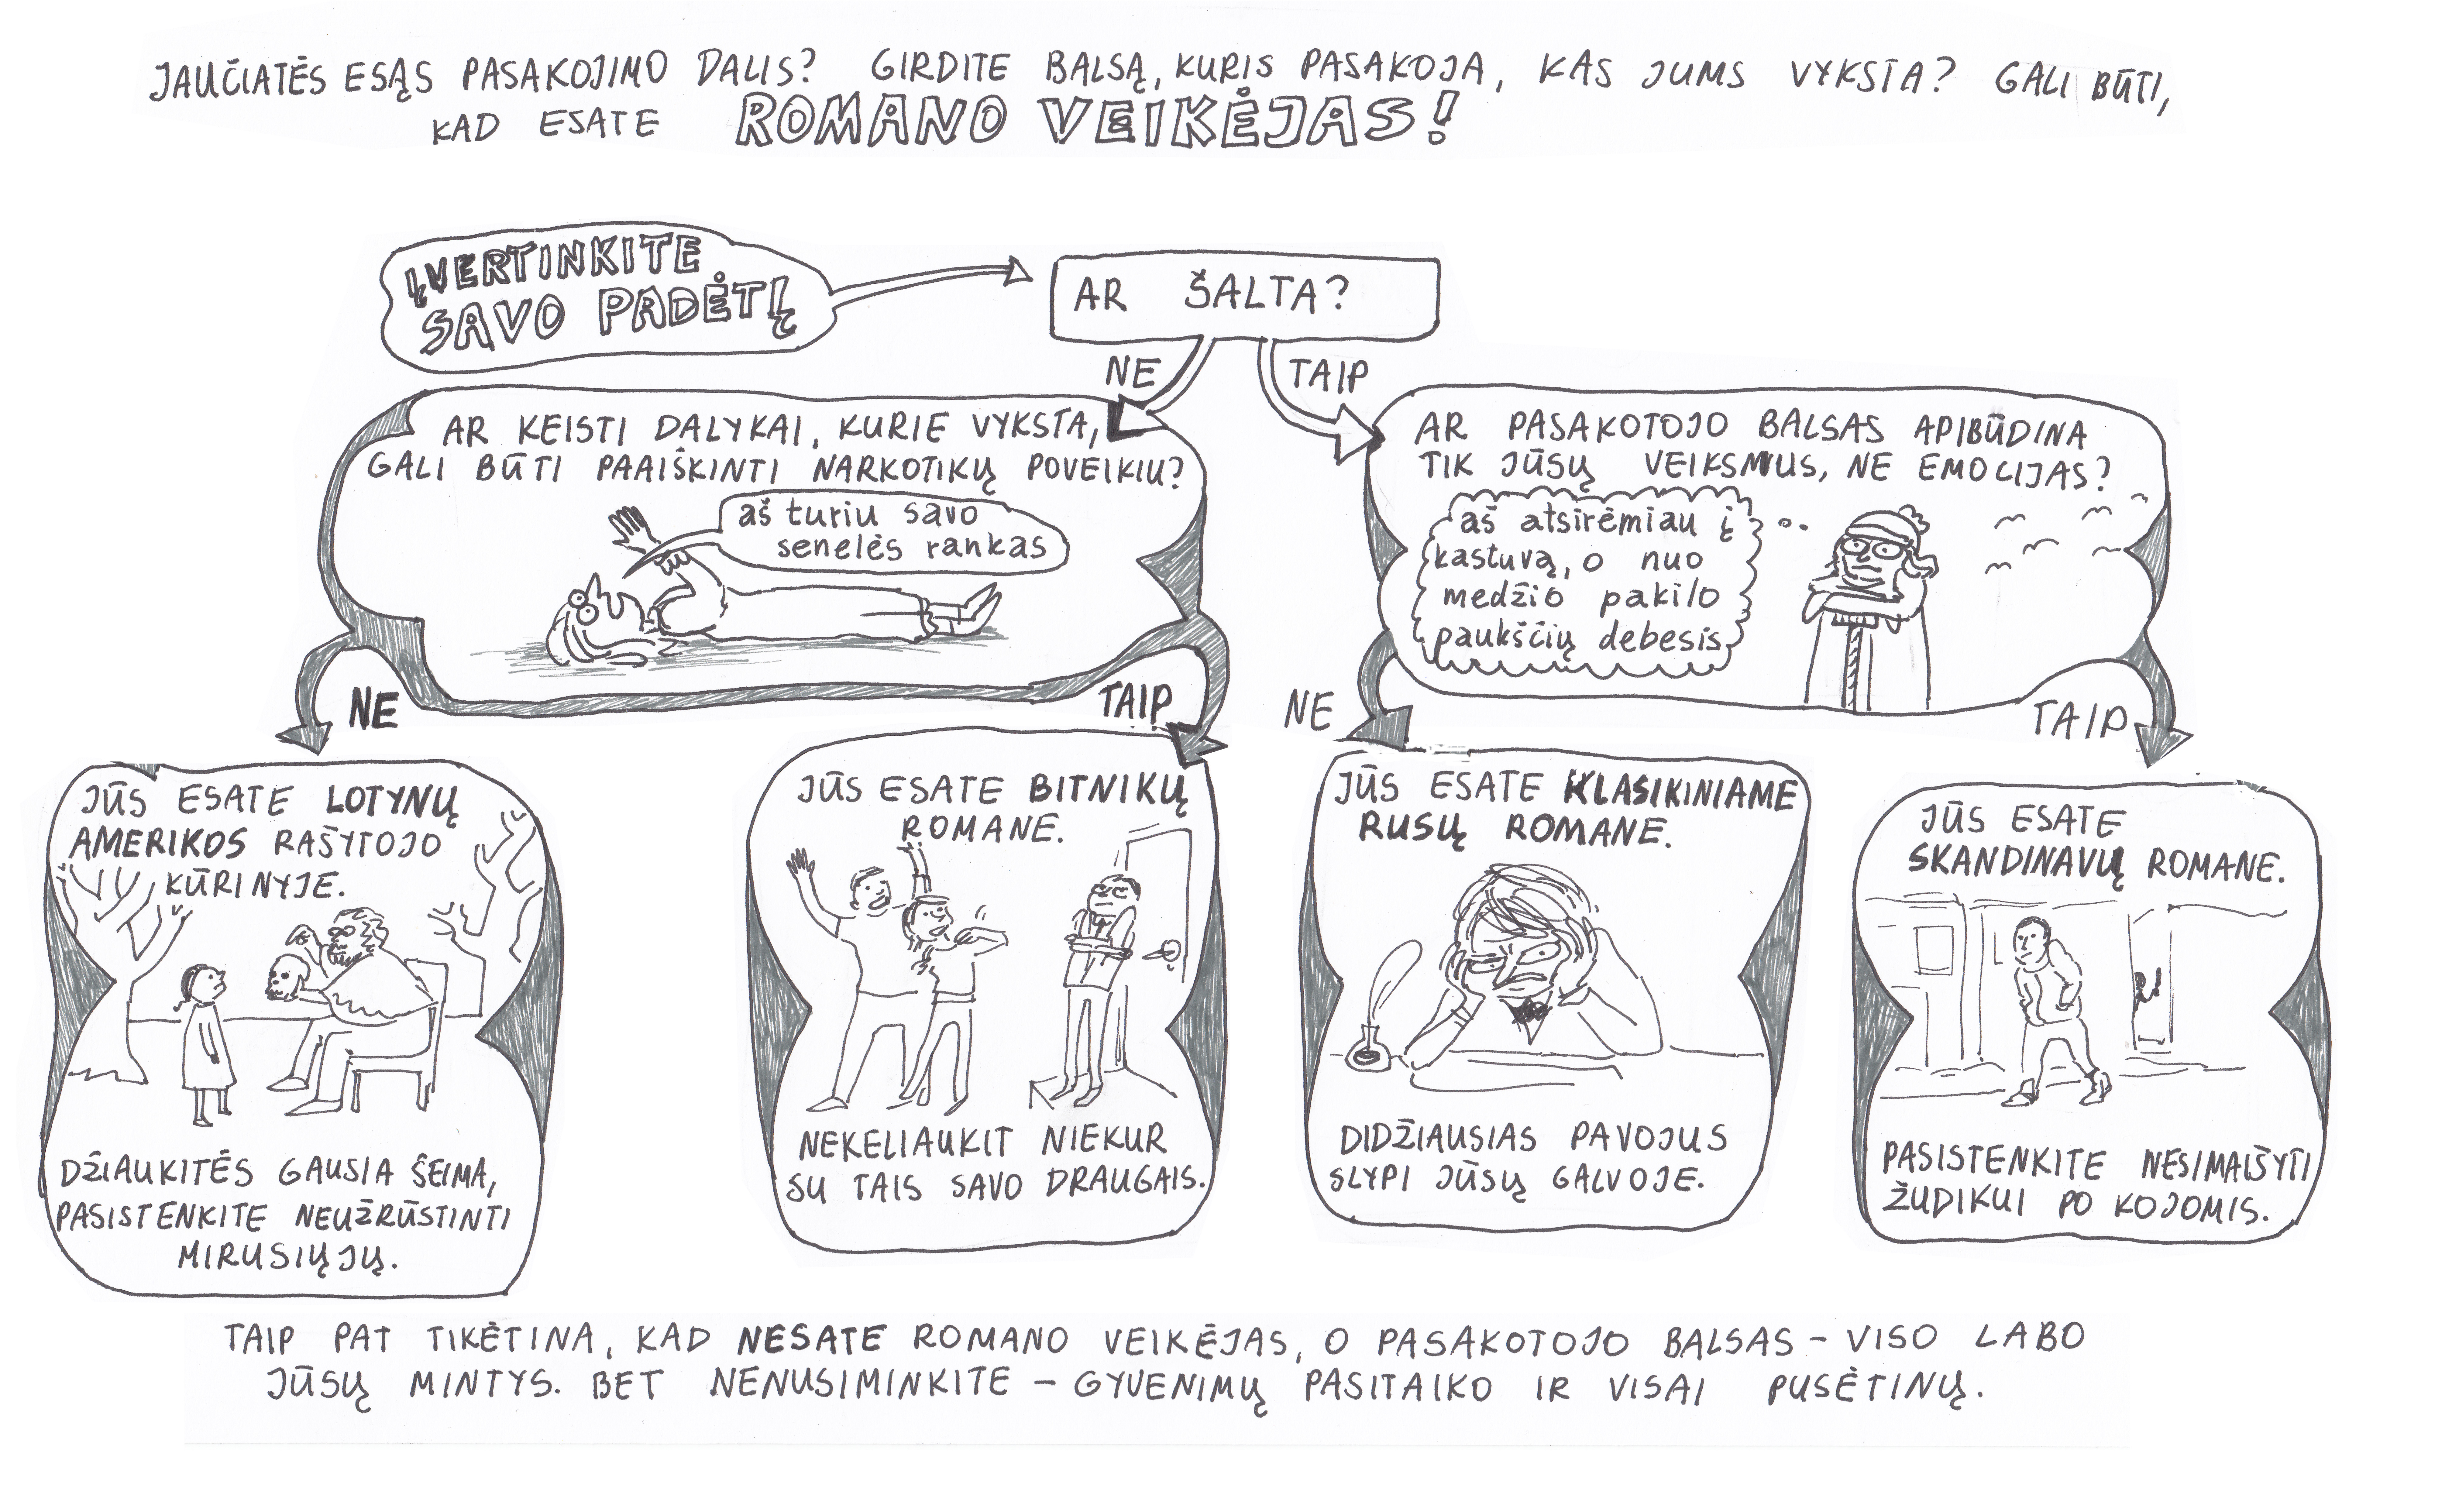 JAUČIATĖS ESĄS PASAKOJIMO DALIS? GIRDITE BALSĄ, KURIS PASAKOJA, KAS JUMS VYKSTA? GALI BŪTI,
KAD ESATE ROMANO VEIKĖJAS!
ĮVERTINKITE
SAVO PADĖTĮ
AR ŠALTA?
NE
TAIP
AR KEISTI DALYKAI, KURIE VYKSTA,
GALI BŪTI PAAIŠKINTI NARKOTIKŲ POVEIKIU?
aš turiu savo
senelės rankas
NE
TAIP
AR PASAKOTOJO BALSAS APIBŪDINA
TIK JŪSŲ VEIKSMUS, NE EMOCIJAS?
aš atsirėmiau į
kastuvą, o nuo
medžio pakilo
paukščių debesis
NE
TAIP
JŪS ESATE LOTYNŲ
AMERIKOS RAŠYTOJO
KŪRINYJE.
DŽIAUKITĖS GAUSIA ŠEIMA,
PASISTENKITE NEUŽRŪSTINTI
MIRUSIŲJŲ.
JŪS ESATE BITNIKŲ
ROMANE.
NEKELIAUKIT NIEKUR
SU TAIS SAVO DRAUGAIS.
JŪS ESATE KLASIKINIAME
RUSŲ ROMANE.
DIDŽIAUSIAS PAVOJUS
SLYPI JŪSŲ GALVOJE.
JŪS ESATE
SKANDINAVŲ ROMANE.
PASISTENKITE NESIMAIŠYTI
ŽUDIKUI PO KOJOMIS.
TAIP PAT TIKĖTINA, KAD NESATE ROMANO VEIKĖJAS, O PASAKOTOJO BALSAS – VISO LABO
JŪSŲ MINTYS. BET NENUSIMINKITE – GYVENIMŲ PASITAIKO IR VISAI PUSĖTINŲ.